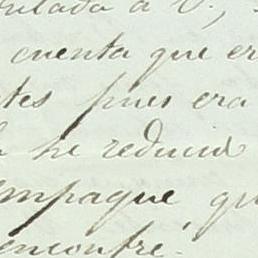 a V.,
cuenta que er
tes pues era
he reducid
mpaque, qu
encontré.